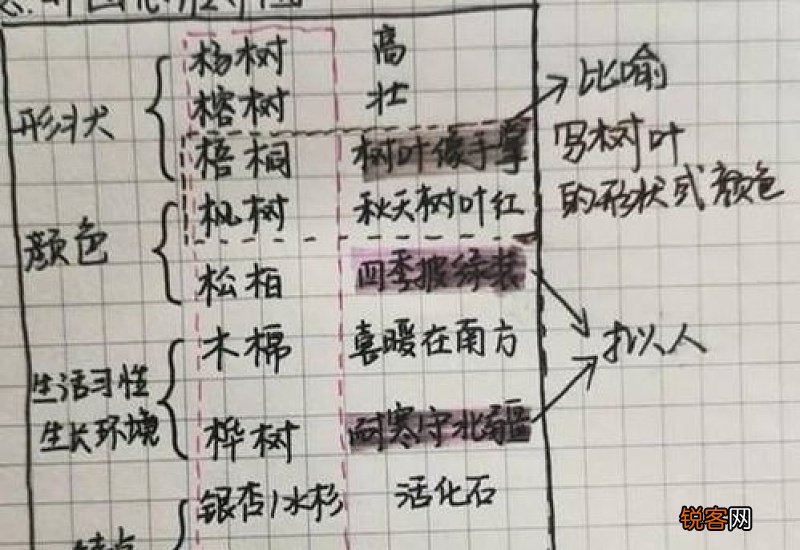 形状
杨树 高
榕树 壮
梧桐 树叶像手掌
颜色
枫树 秋天树叶红
松柏 四季披绿装
生活习性
生长环境
木棉 喜暖在南方
桦树 耐寒守北疆
银杏/水杉 活化石
特点
比喻
写树叶
的形状或颜色
拟人
锐客网